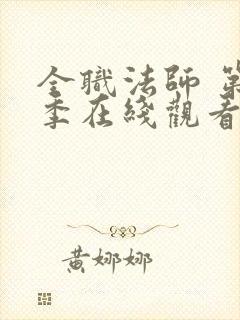 全職法師 第
季在綫觀看
黃娜娜